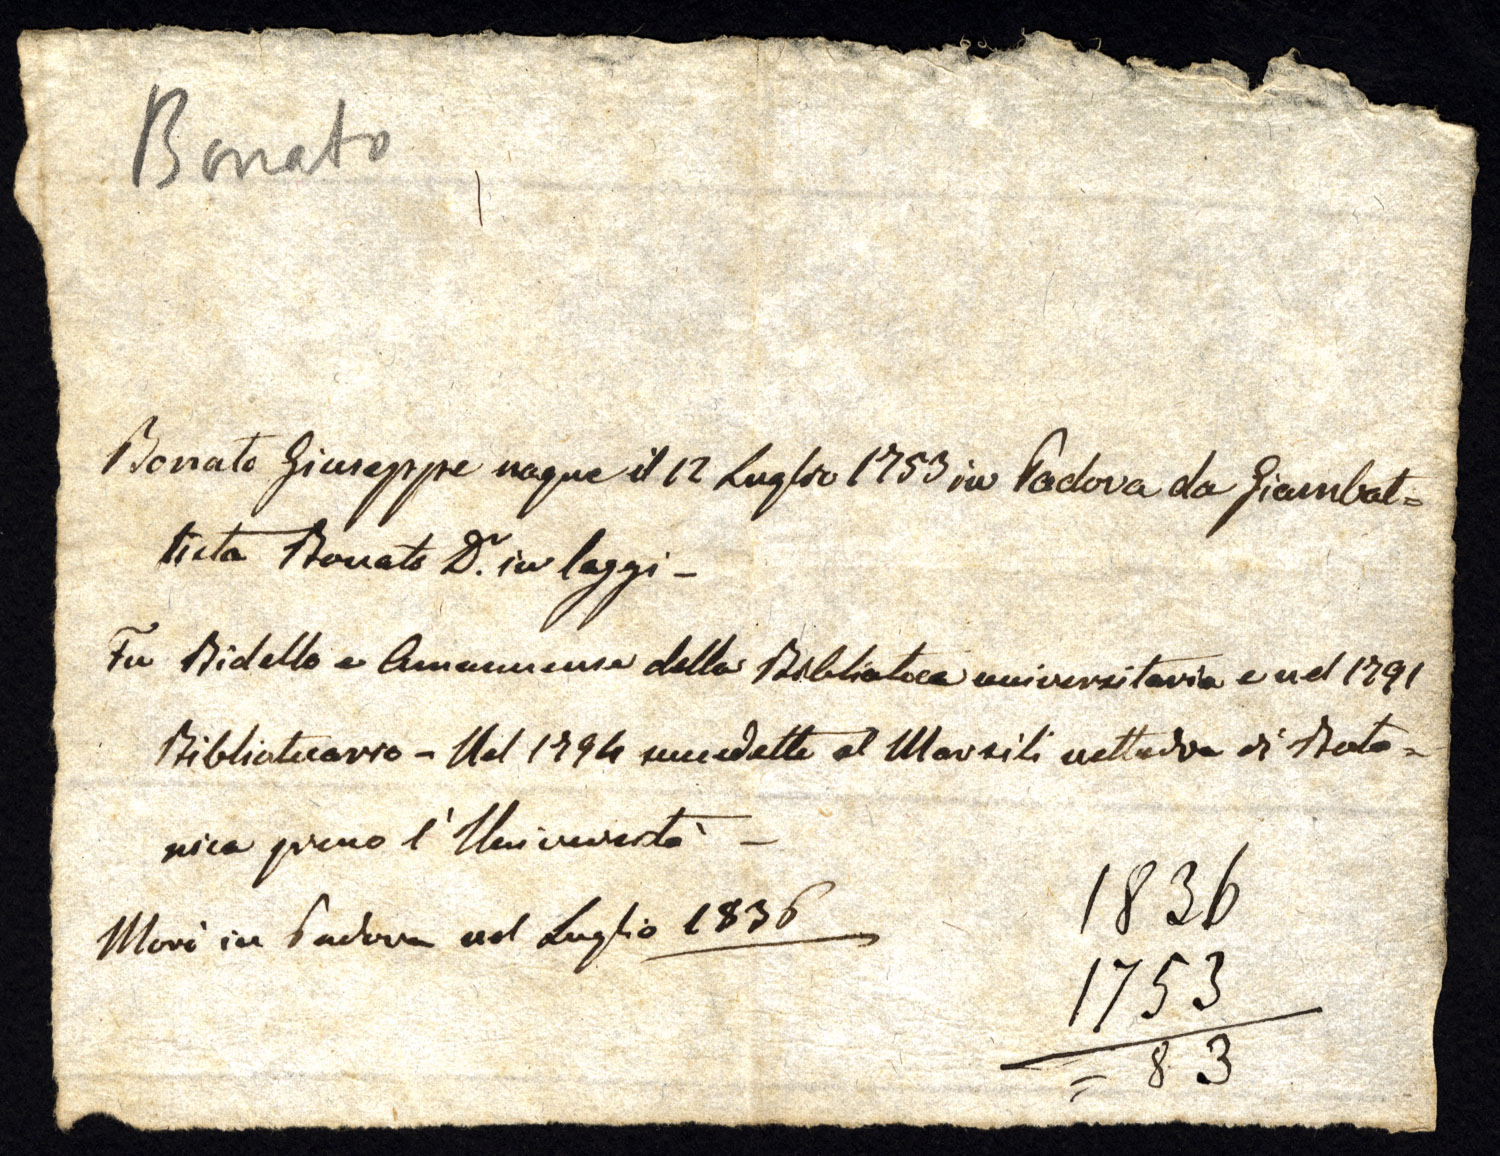 Bonato
Bonato Giuseppe naque il 12 Luglio 1753 in Padova da Giambat=
tista Bonato D.r in leggi –
Fu Bidello e Amanuense della Biblioteca universitaria e nel 1791
Bibliotecario – Nel 1794 succedette al Marsili nella di Bota=
nica presso l'Università –
Morì in Padova nel Luglio 1836
1836
1753
= 83